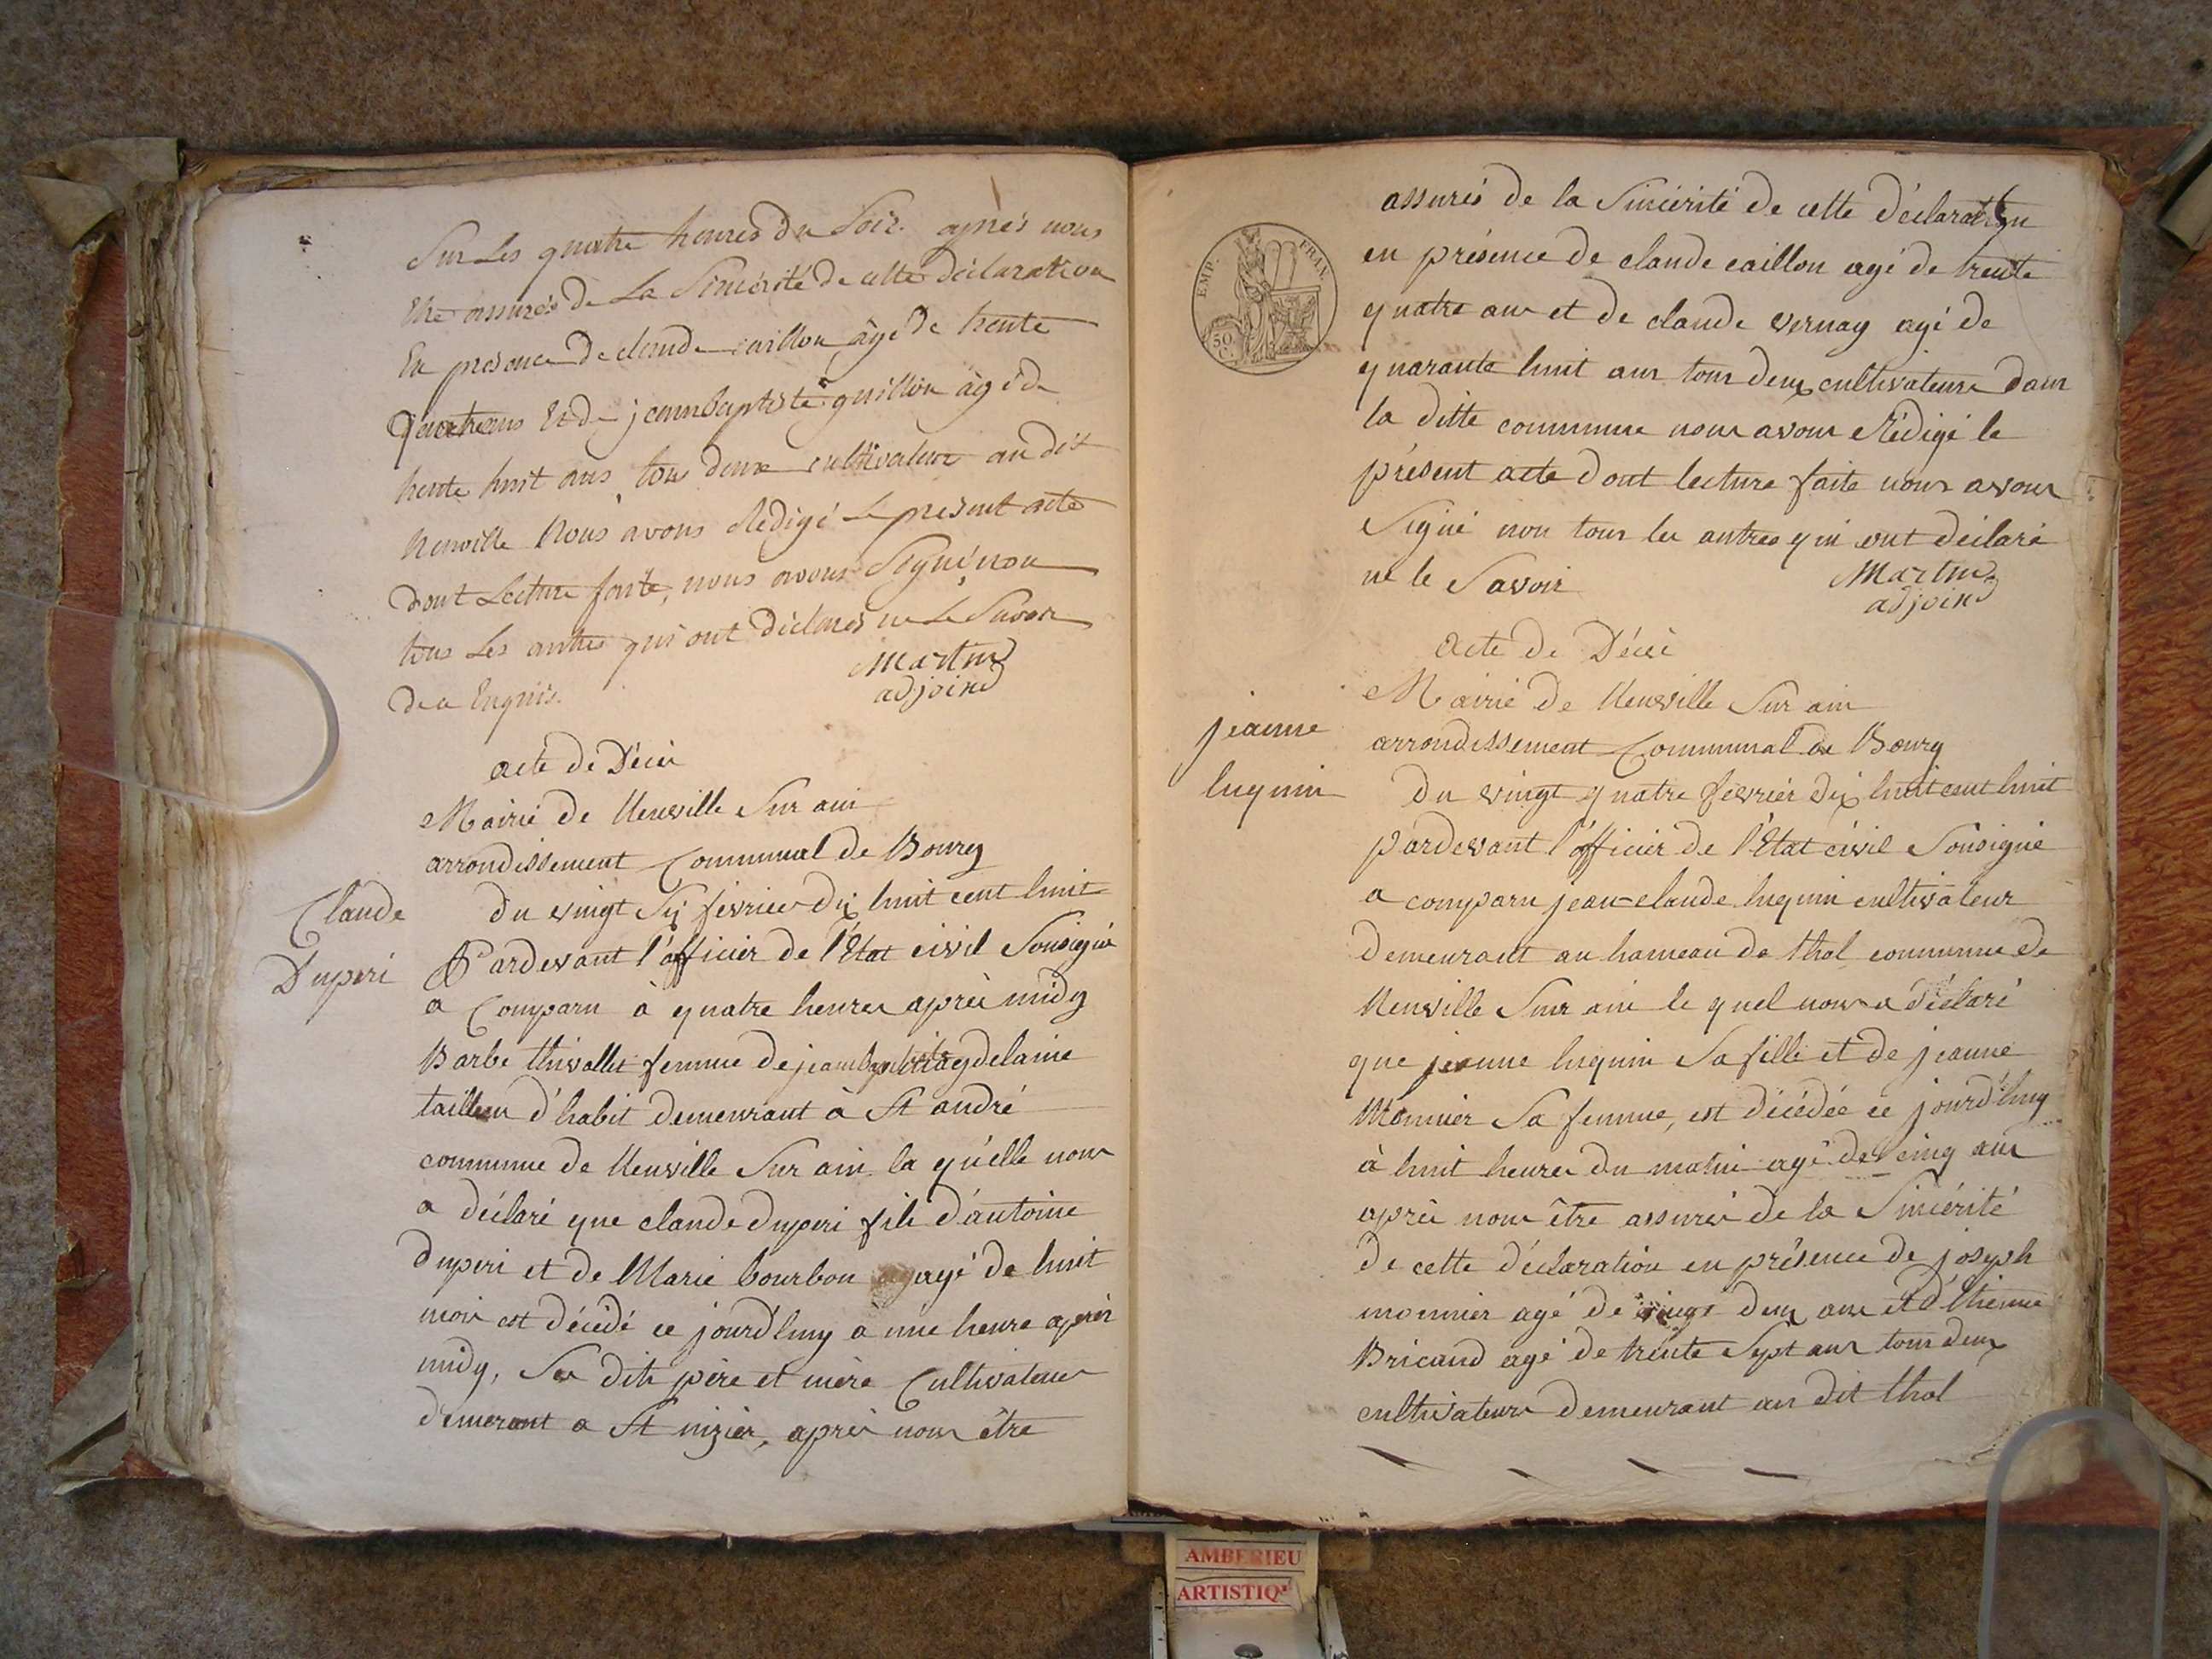 Sur Les quatre heures Du Soir. après nous
Etre assurés De La Sincérité De cette déclaration
En presence De claude caillon âgé De trente
quatre ans Et De jeanbaptiste guillon âgé De
trente huit ans, tous deux cultivateur au dit
neuville Nous avons Rédigé Le present acte
Dont Lecture faite, nous avons Signé non
tous Les autres qui ont déclarés ne Le Savoir
De ce Enquis.
Martin
adjoind
acte de Décès
Mairie de Neuville Sur ain
arrondissement Communal de Bourg
Claude
Duperi
du vingt Six février dix huit cent huit
Pardevant l'officier de l'Etat civil Sousigné
a Comparu à quatre heures après midy
Barbe thivollet femme de jeanbaptiste
tailleur d'habit demeurant à St andré
commune de Neuville Sur ain la qu'elle nous
a déclaré que claude duperi fils d'antoine
duperi et de Marie bourbon agé de huit
mois est décédé ce jourd'huy a une heure après
midy, Ses dits père et mère Cultivateurs
demerant a St nizier, après nous être
EMP. FRAN.
50
C.
assurés de la Sincérité de cette déclaration
en présence de claude caillon agé de trente
quatre ans et de claude vernay agé de
quarante huit ans tous deux cultivateurs dans
la ditte commune nous avons Rédigé le
présent acte dont lecture faite nous avons
Signé non tous les autres qui ont déclaré
ne le Savoir
Martin
adjoind
acte de Décès
Mairie de Neuville Sur ain
jeanne
luquin
arrondissement Communal de Bourg
Du vingt quatre février dix huit cent huit
pardevant l'officier de l'Etat civil Sousigné
a comparu jean-claude luquin cultivateur
demeurant au hameau de thol commune de
Neuville Sur ain le quel nous a déclaré
que jeanne luquin Sa fille et de jeanne
Monnier Sa femme, est décédée ce jourd'huy
à huit heures du matin agé de cinq ans
après nous être assurés de la Sincérité
de cette déclaration en présence de joseph
monnier agé de vingt deux ans et d'Etienne
Bricand agé de trente Sept ans tous deux
cultivateurs demeurant au dit thol
AMBERIEU
ARTISTIQ